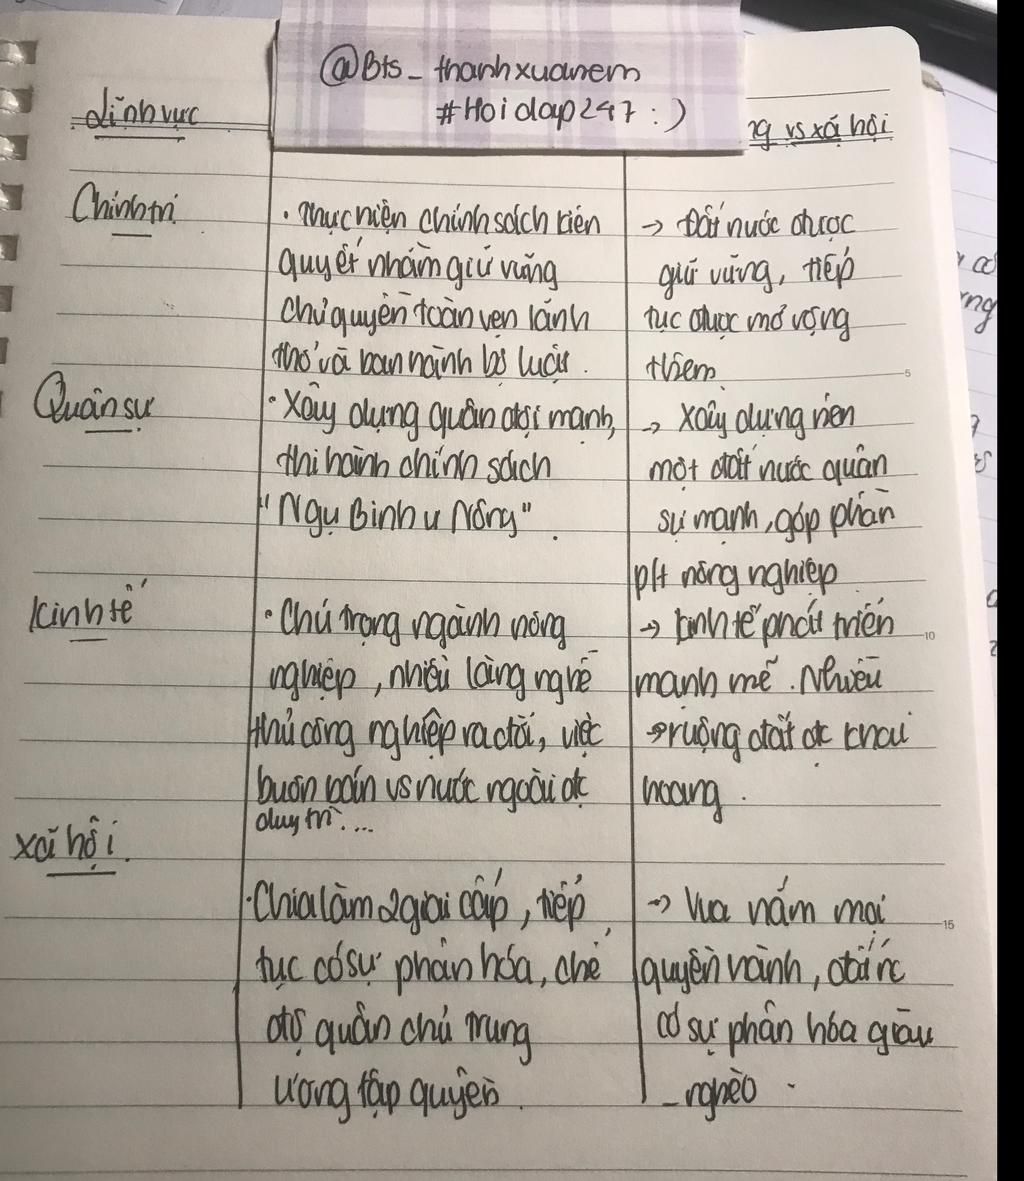 @Bts_thanhxuanem
#Hoidap247 :)
Lĩnh vực
ng vs xã hội
Chính trị
• Thực hiện chính sách kiên
quyết nhằm giữ vững
chủ quyền toàn vẹn lãnh
thổ và ban hành bộ luật.
→ Đất nước được
giữ vững, tiếp
tục được mở rộng
thêm
5
Quân sự
• Xây dựng quân đội mạnh,
thi hành chính sách
"Ngụ Binh ư Nông".
→ Xây dựng nên
một đất nước quân
sự mạnh, góp phần
pH nông nghiệp
Kinh tế
• Chú trọng ngành nông
nghiệp, nhiều làng nghề
thủ công nghiệp ra đời, việc
buôn bán vs nước ngoài đc
duy trì....
→ kinh tế phát triển
10
mạnh mẽ. Nhiều
→ ruộng đất đc khai
hoang.
xã hội.
• Chia làm 2 giai cấp, tiếp
tục có sự phân hóa, chế
độ quân chủ trung
ương tập quyền.
→ Vua nắm mọi
15
quyền hành, đất nc
có sự phân hóa giàu
_ nghèo.